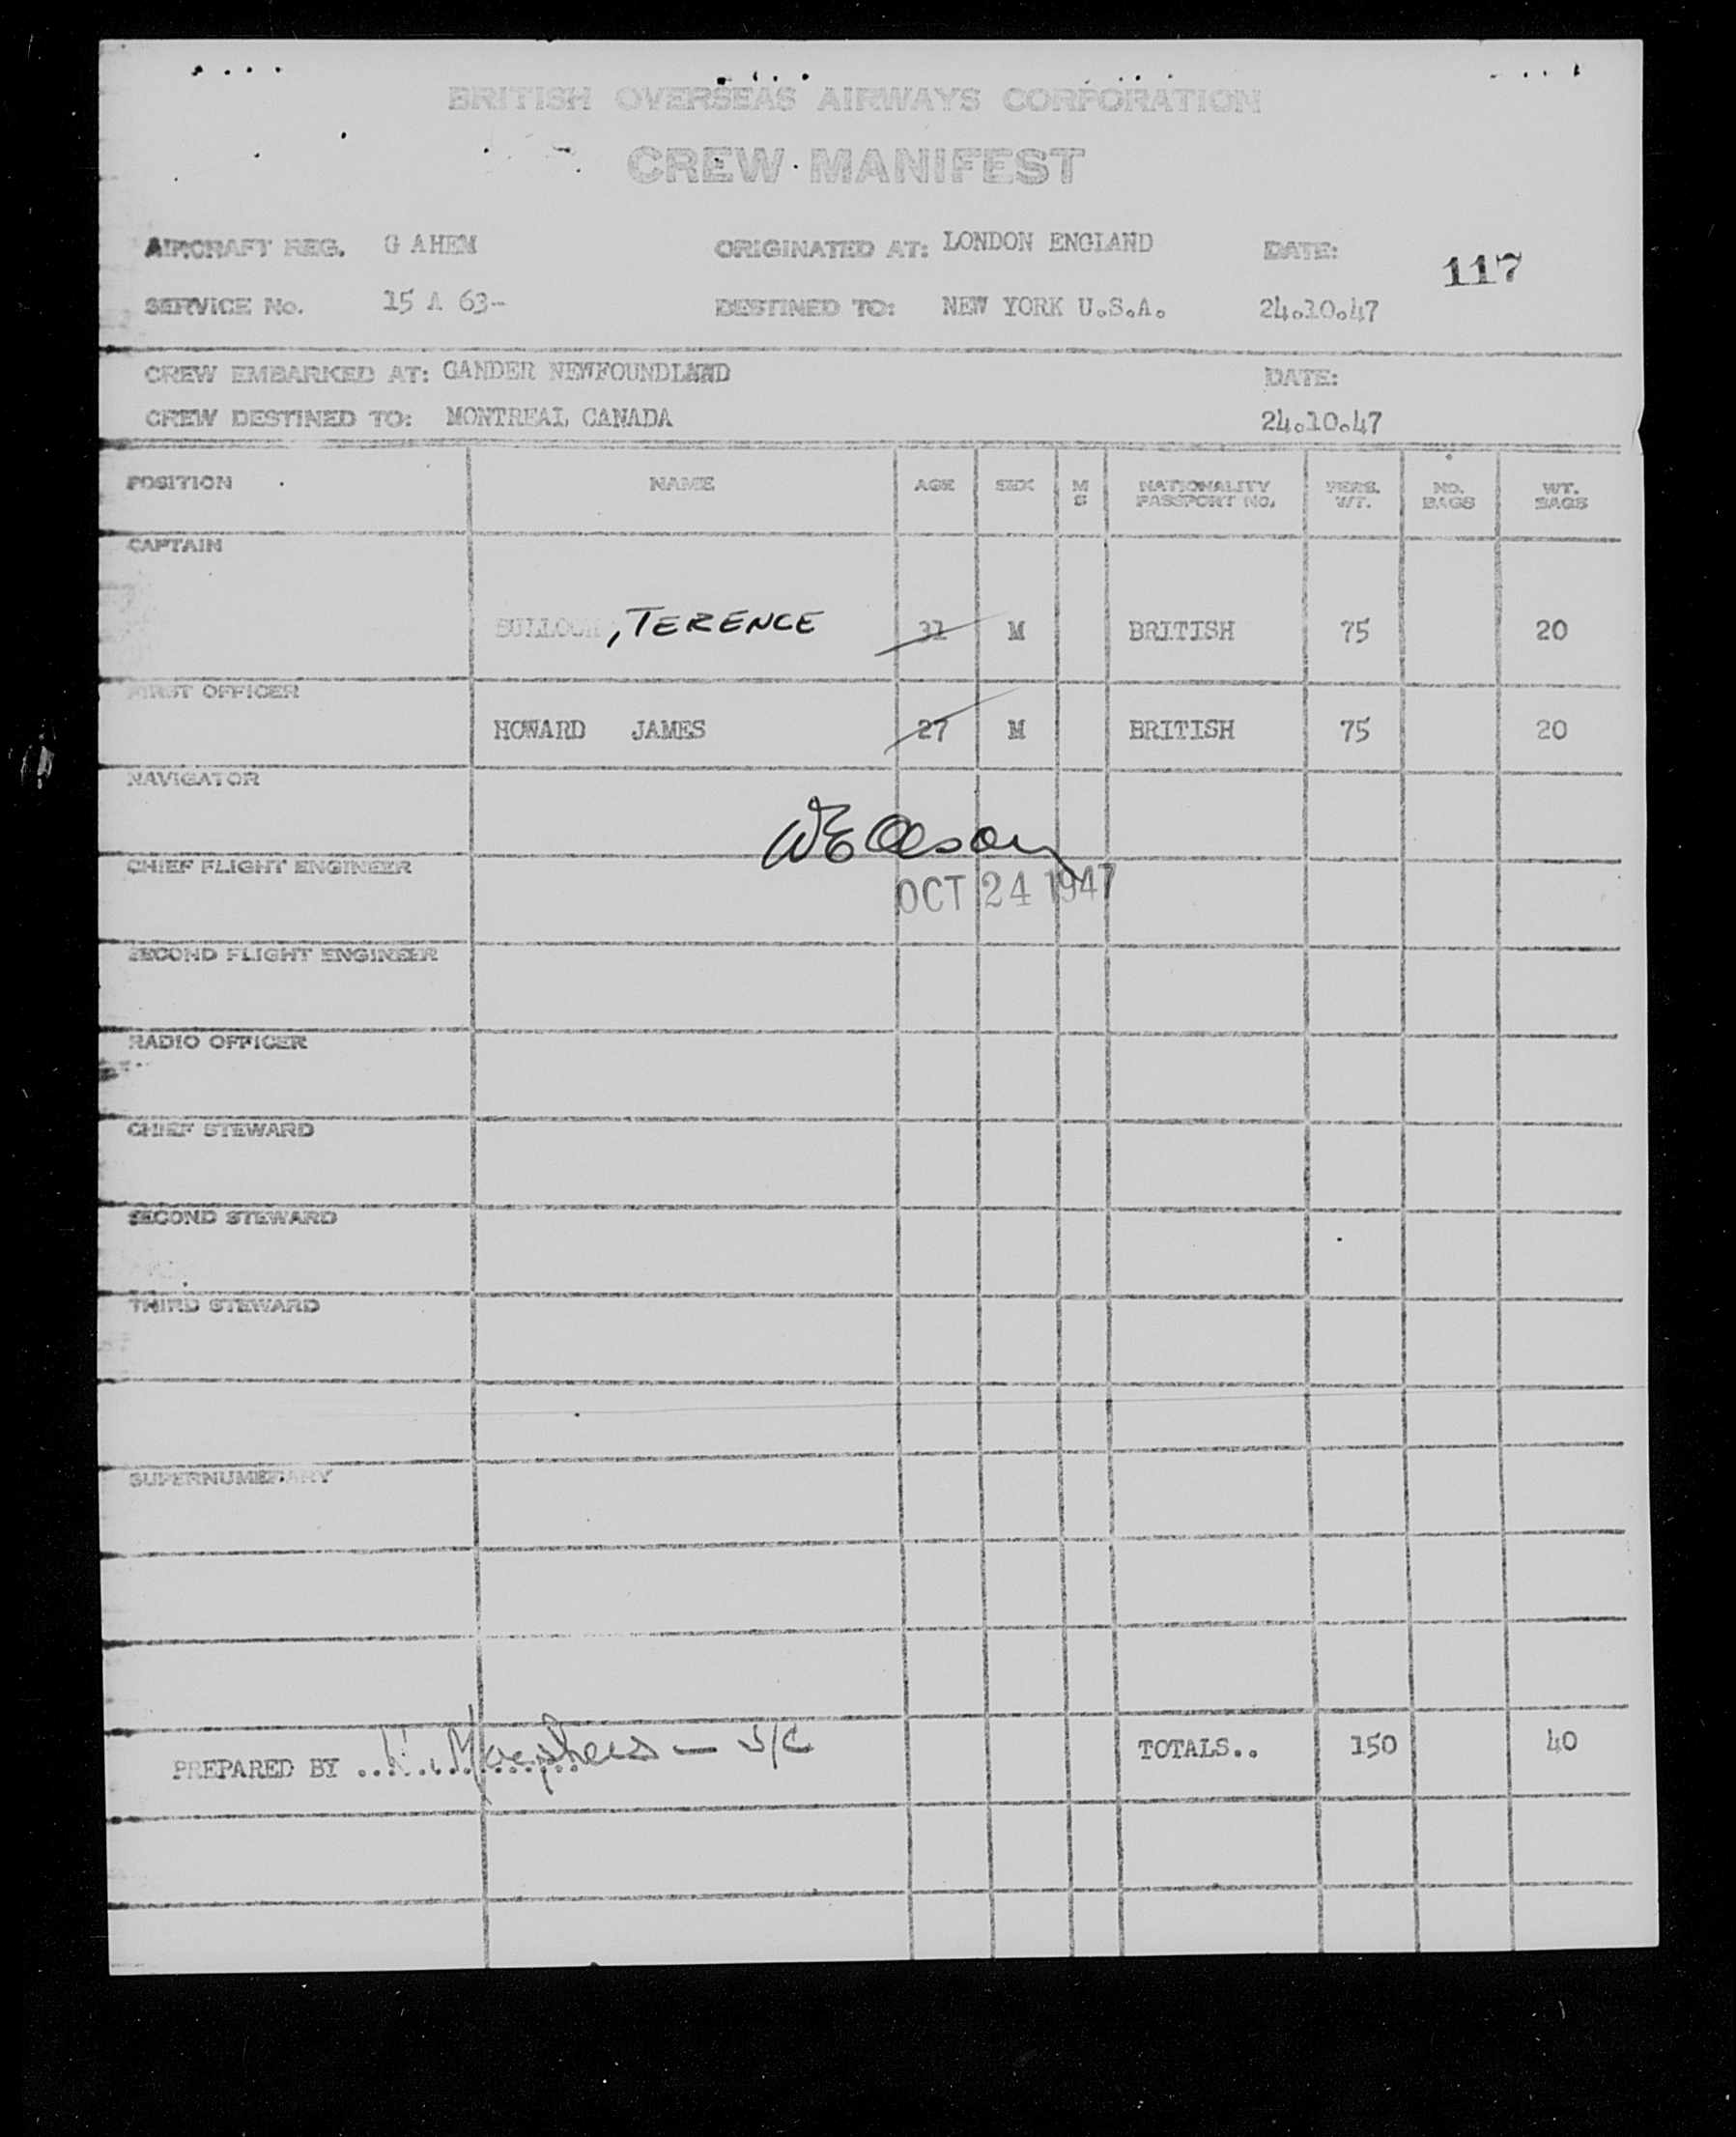 BRITISH OVERSEAS AIRWAYS CORPORATION
CREW MANIFEST
AIRCRAFT REG. G AHEM ORIGINATED AT: LONDON ENGLAND DATE:
117
SERVICE No. 15 A 63- DESTINED TO: NEW YORK U.S.A. 24.10.47
CREW EMBARKED AT: GANDER NEWFOUNDLAND DATE:
CREW DESTINED TO: MONTREAL CANADA 24.10.47
POSITION NAME AGE SEX M S NATIONALITY PASSPORT NO. PERS. WT. NO. BAGS WT. BAGS
CAPTAIN
BULLOCH, TERENCE 31 M BRITISH 75 20
FIRST OFFICER
HOWARD JAMES 27 M BRITISH 75 20
NAVIGATOR
CHIEF FLIGHT ENGINEER
OCT 24 1947
SECOND FLIGHT ENGINEER
RADIO OFFICER
CHIEF STEWARD
SECOND STEWARD
THIRD STEWARD
SUPERNUMERARY
PREPARED BY TOTALS.. 150 40